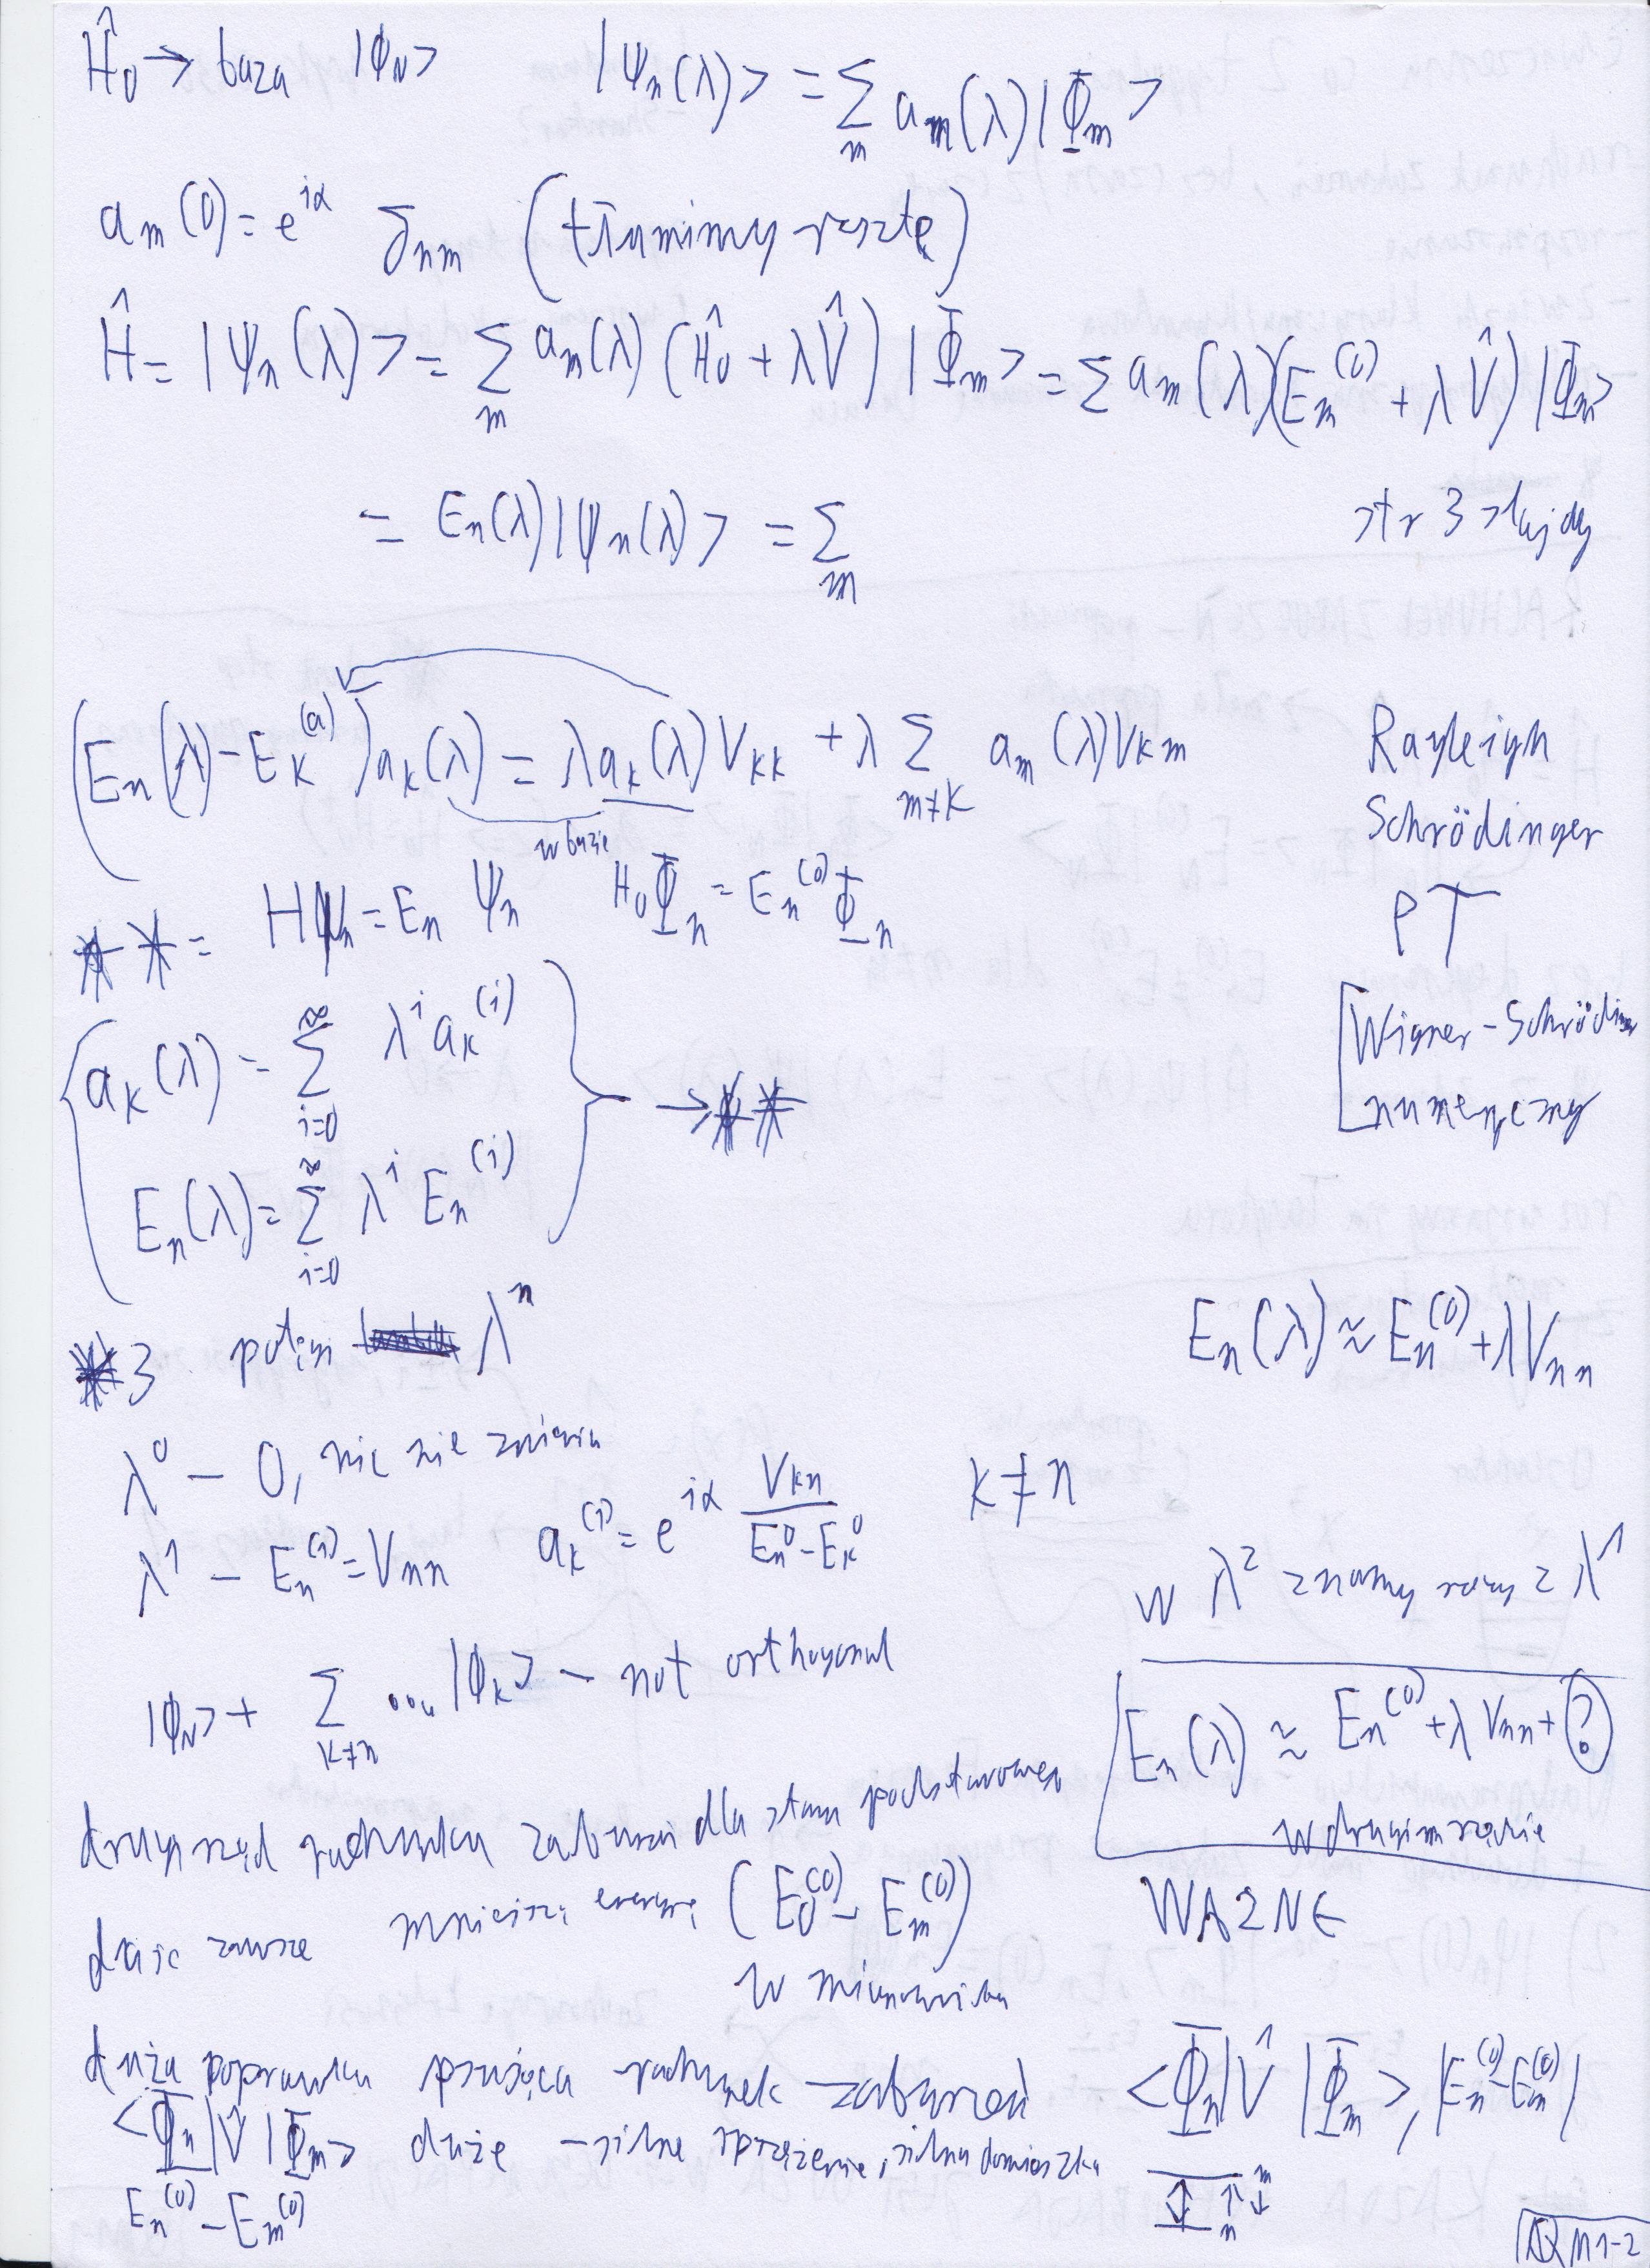 Ĥ₀ → baza |ϕ_N> |ψ_n(λ)> = Σ_m a_m(λ)|Φ_m>
a_m(0) = e^{iα} δ_{nm} (tłumimy resztę)
Ĥ = |ψ_n(λ)> = Σ_m a_m(λ)(Ĥ₀ + λV̂)|Φ_m> = Σ a_m(λ)(E_m^{(0)} + λV̂)|Φ_m>
= E_n(λ)|ψ_n(λ)> = Σ_m
str 3 slajdy
(E_n(λ) - E_K^{(a)})a_k(λ) = λa_k(λ)V_{kk} + λ Σ_{m≠K} a_m(λ)V_{Km}
w bazie
Rayleigh
Schrödinger
PT
** = Hψ_n = E_n ψ_n H₀Φ_n = E_n^{(0)}Φ_n
[Wigner-Schrödinger
numeryczny
a_k(λ) = Σ_{i=0}^{∞} λ^i a_k^{(i)}
→ **
E_n(λ) = Σ_{i=0}^{∞} λ^i E_n^{(i)}
*3 potęgi λ^n
E_n(λ) ≈ E_n^{(0)} + λV_{nn}
λ⁰ - 0, nic nie zmienia
λ¹ - E_n^{(1)} = V_{nn} a_k^{(1)} = e^{iα} V_{kn}/(E_n^0 - E_k^0) k ≠ n
w λ² znamy rzeczy z λ¹
|ϕ_N> + Σ_{k≠n} ...|ϕ_k> - not orthogonal
E_n(λ) ≈ E_n^{(0)} + λV_{nn} + ?
w drugim rzędzie
WAŻNE
drugi rząd rachunku zaburzeń dla stanu podstawowego
daje zawsze mniejszą energię (E_0^{(0)} - E_m^{(0)})
w mianowniku
duża poprawka psująca rachunek zaburzeń
<Φ_n|V̂|Φ_m>, |E_n^{(0)} - E_m^{(0)}|
<Φ_n|V̂|Φ_m> duże - silne sprzężenie, silna domieszka
E_n^{(0)} - E_m^{(0)}
↕ ↑ n ↓ m
M1-2